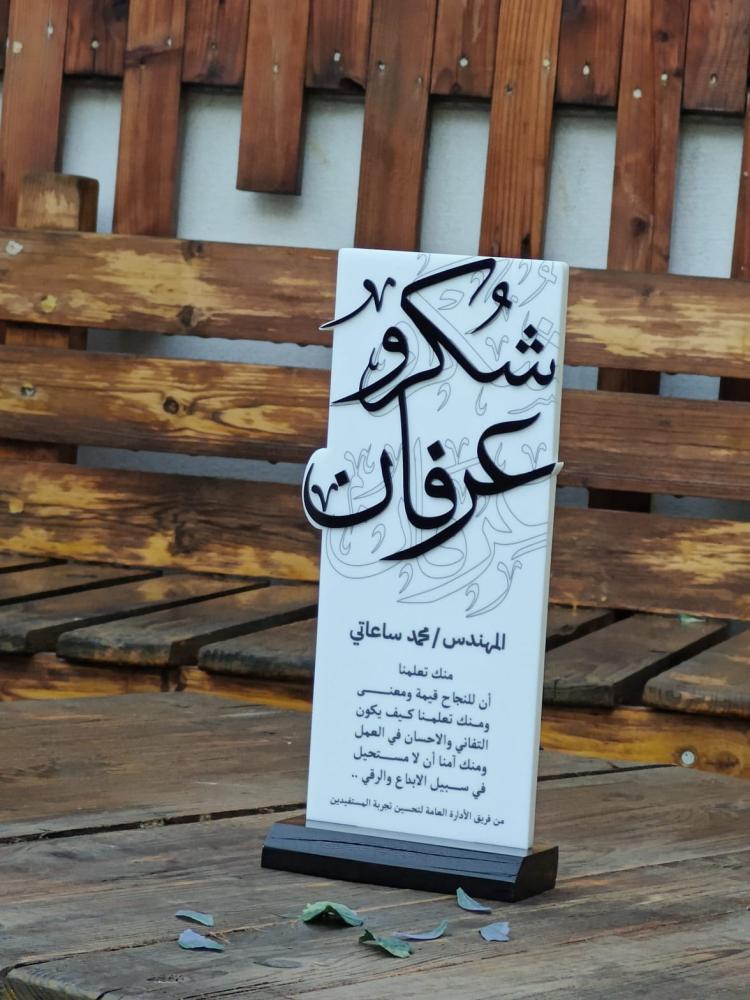 شكرو
عرفان
المهندس / محمد ساعاتي
منك تعلمنا
أن للنجاح قيمة ومعنـــى
ومـنك تعلمـنا كـيف يكون
التفاني والاحسان في العمل
ومنك آمنا أن لا مسـتحيل
في سـبيل الابداع والرقي ..
من فريق الأدارة العامة لتحسين تجربة المستفيدين